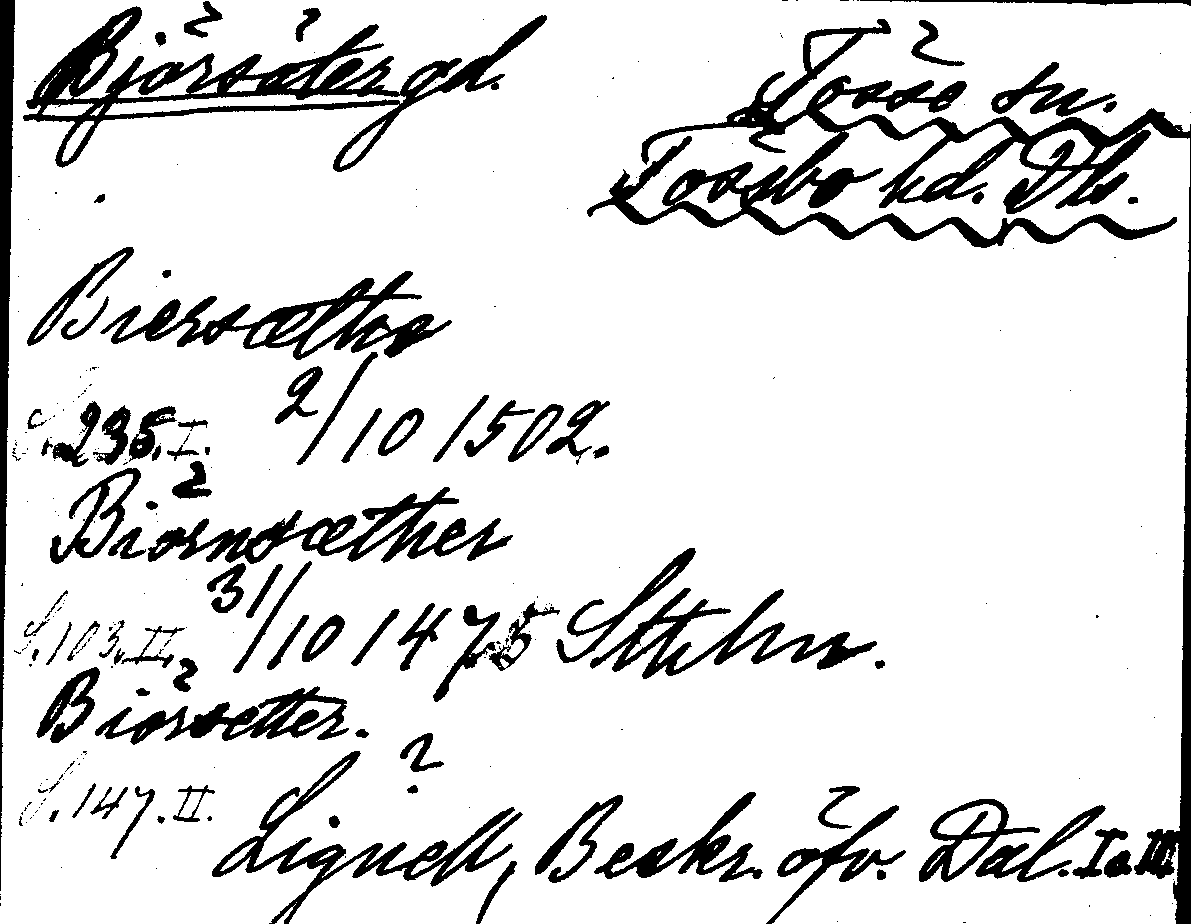 Björsäter gd.
Tösse sn.
Tössbo hd. Dls.
Biersætho
S. 235. I. 2/10 1502.
Biörnsæther
S. 103. II. 31/10 1475 Sthlm.
Biörsetter.
S. 147. II.
Lignell, Beskr. öfv. Dal. I o. III